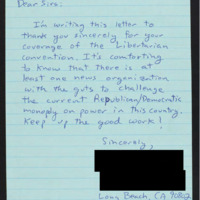 Dear Sirs:
I'm writing this letter to
thank you sincerely for your
coverage of the Libertarian
convention. It's comforting
to know that there is at
least one news organization
with the guts to challenge
the current Republican/Democratic
monopoly on power in this country.
Keep up the good work!
Sincerely,
Long Beach, CA